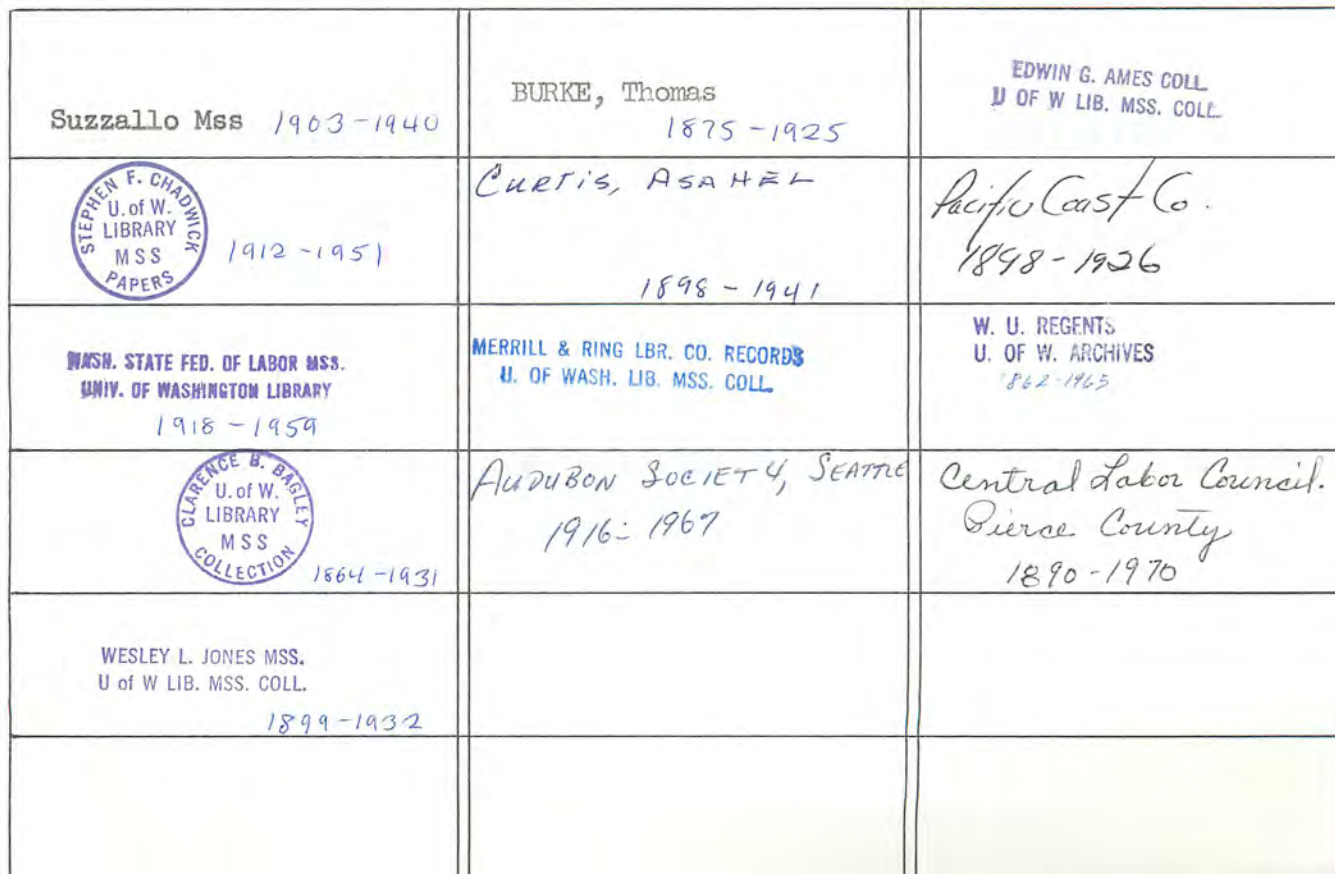 Suzzallo Mss 1903-1940
BURKE, Thomas
1875-1925
EDWIN G. AMES COLL.
U OF W LIB. MSS. COLL.
STEPHEN F. CHADWICK
U. of W.
LIBRARY
MSS
PAPERS
1912-1951
CURTIS, ASAHEL
1898-1941
Pacific Coast Co.
1898-1926
WASH. STATE FED. OF LABOR MSS.
UNIV. OF WASHINGTON LIBRARY
1918-1959
MERRILL & RING LBR. CO. RECORDS
U. OF WASH. LIB. MSS. COLL.
W. U. REGENTS
U. OF W. ARCHIVES
1862-1965
CLARENCE B. BAGLEY
U. of W.
LIBRARY
MSS
COLLECTION
1864-1931
AUDUBON SOCIETY, SEATTLE
1916-1967
Central Labor Council.
Pierce County
1890-1970
WESLEY L. JONES MSS.
U of W LIB. MSS. COLL.
1899-1932